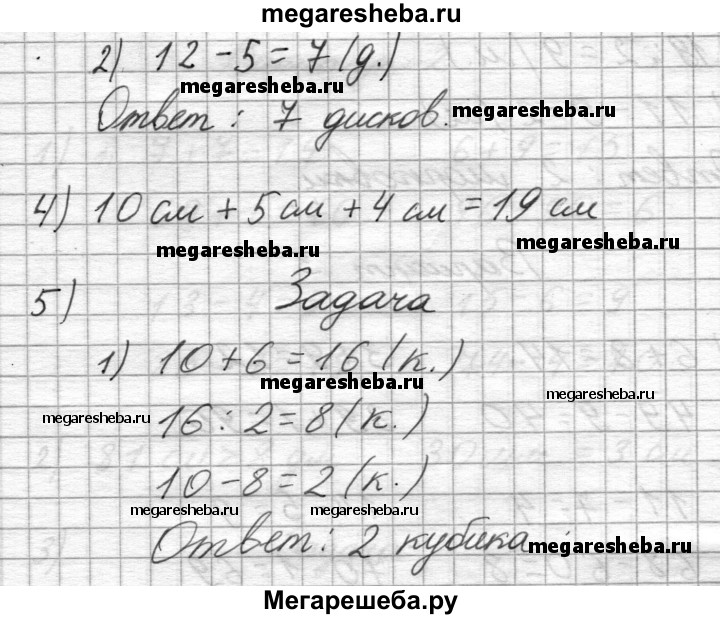 megaresheba.ru
2) 12 - 5 = 7 (д.)
megaresheba.ru
Ответ: 7 дисков.
megaresheba.ru
4) 10 см + 5 см + 4 см = 19 см
megaresheba.ru megaresheba.ru
5) Задача
1) 10 + 6 = 16 (к.)
megaresheba.ru
megaresheba.ru 16 : 2 = 8 (к.) megaresheba.ru
10 - 8 = 2 (к.)
megaresheba.ru megaresheba.ru
Ответ: 2 кубика. megaresheba.ru
Мегарешеба.ру